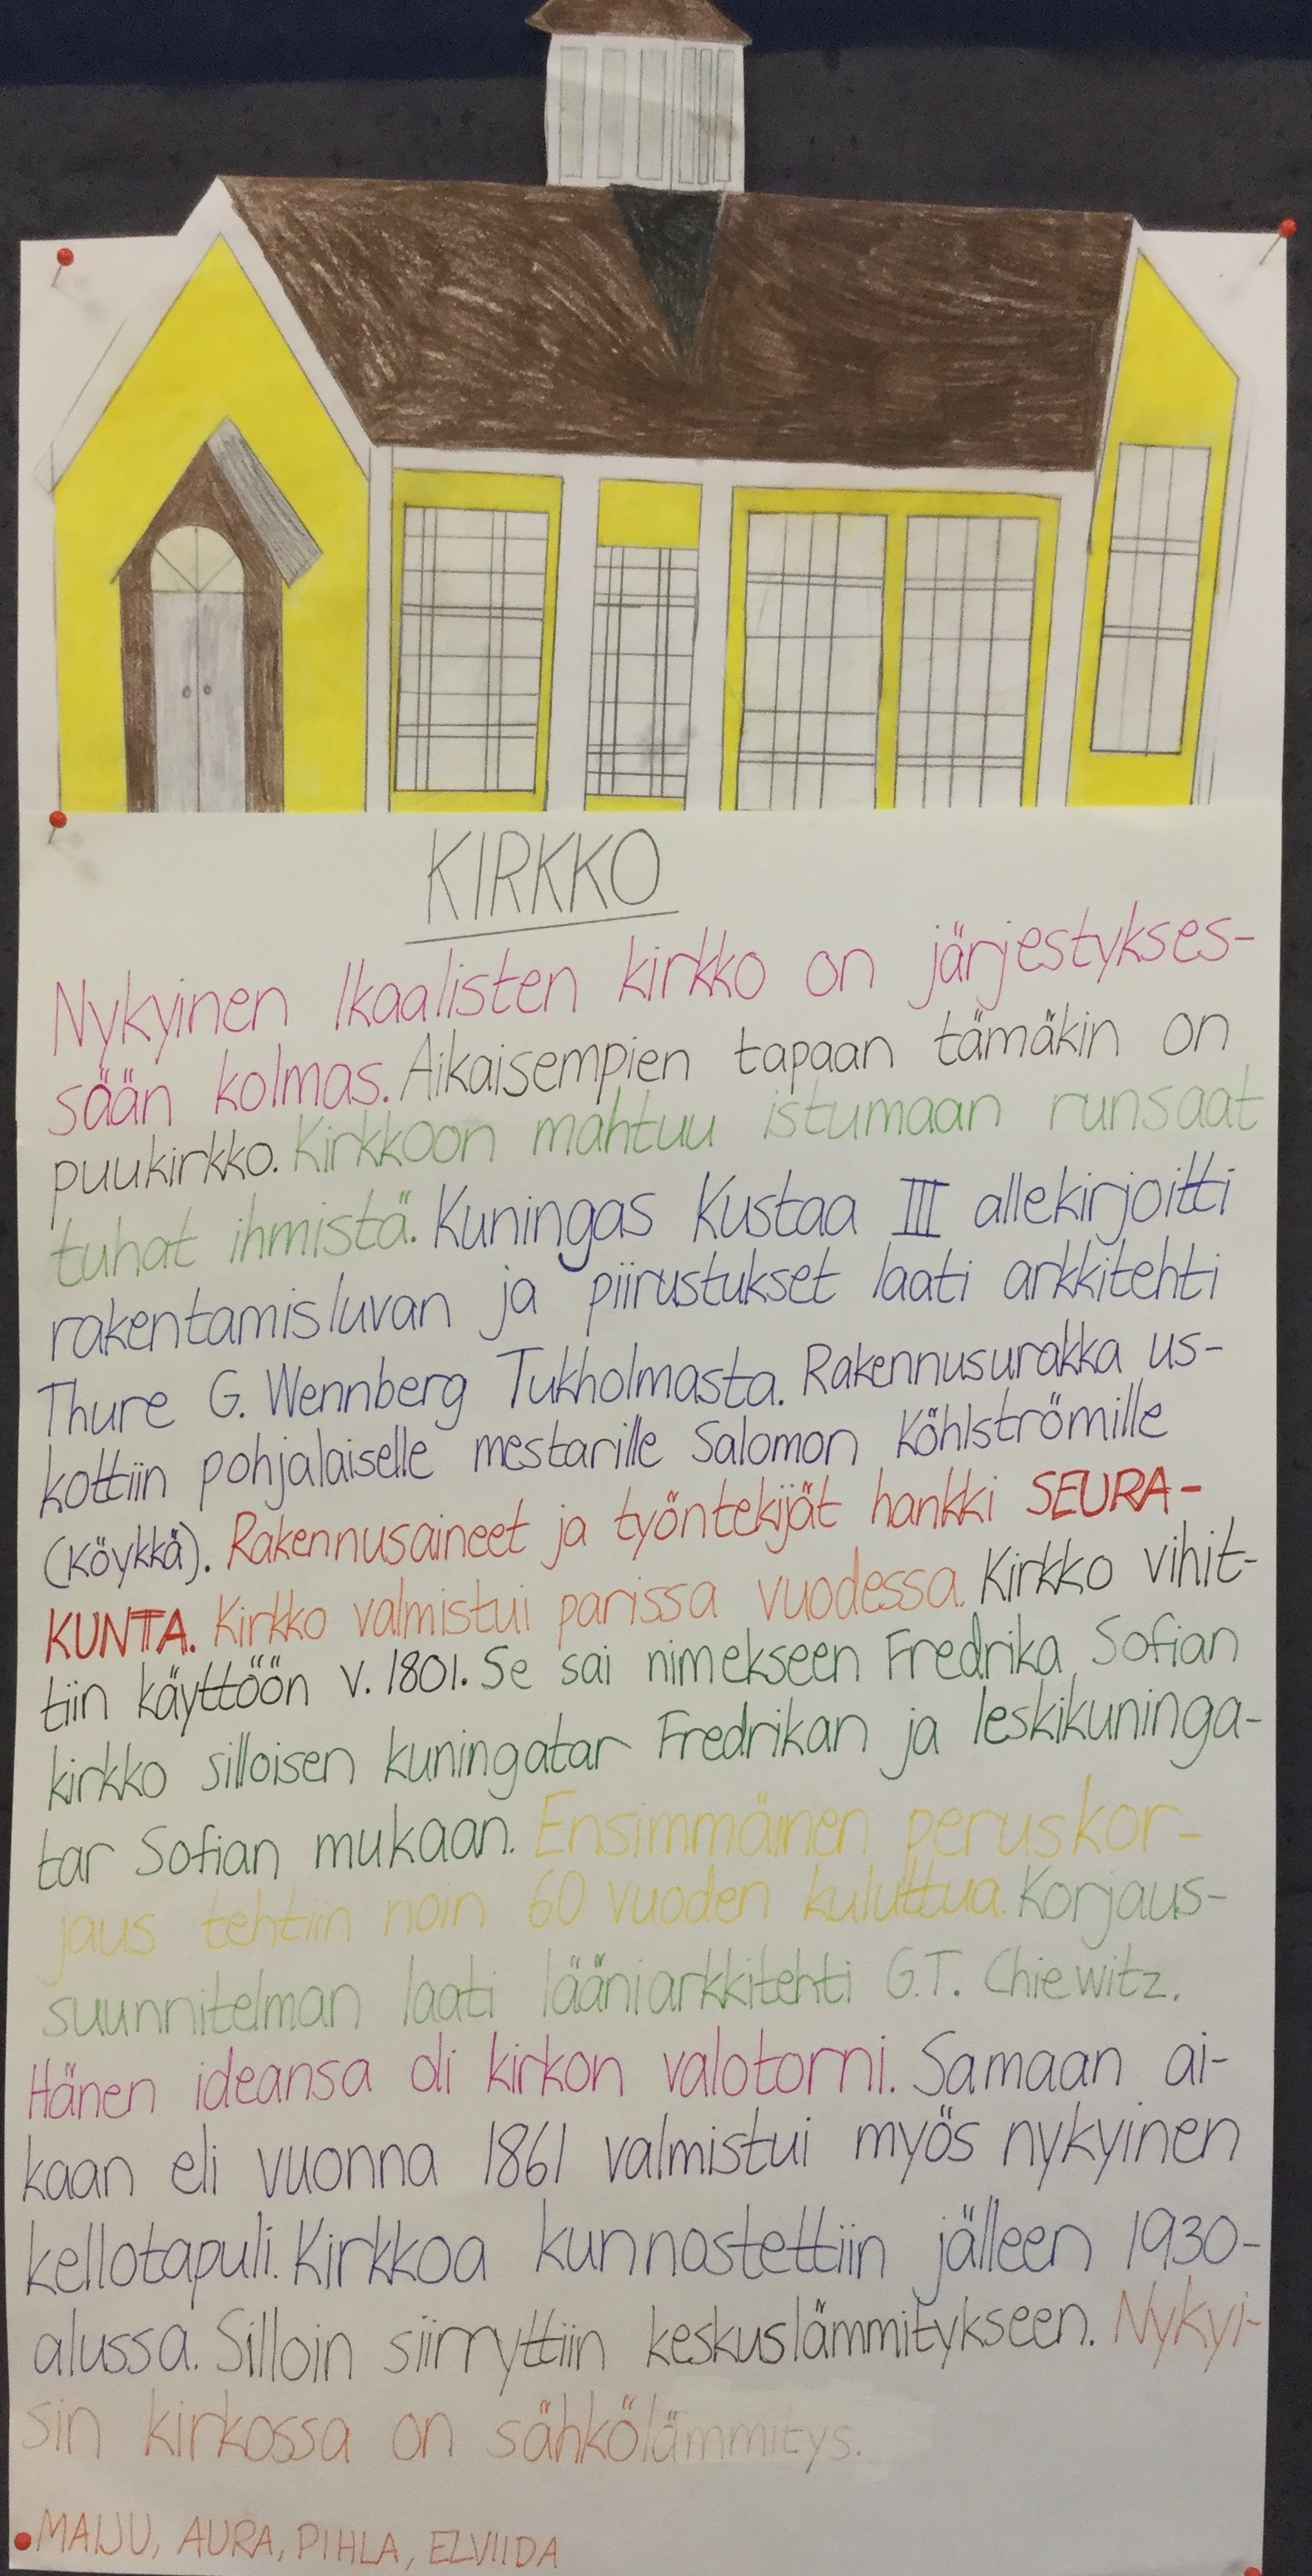 KIRKKO
Nykyinen Ikaalisten kirkko on järjestykses-
sään kolmas. Aikaisempien tapaan tämäkin on
puukirkko. Kirkkoon mahtuu istumaan runsaat
tuhat ihmistä. Kuningas Kustaa III allekirjoitti
rakentamisluvan ja piirustukset laati arkkitehti
Thure G. Wennberg Tukholmasta. Rakennusurakka us-
kottiin pohjalaiselle mestarille Salomon Köhlströmille
(Köykkä). Rakennusaineet ja työntekijät hankki SEURA-
KUNTA. Kirkko valmistui parissa vuodessa. Kirkko vihit-
tiin käyttöön v. 1801. Se sai nimekseen Fredrika Sofian
kirkko silloisen kuningatar Fredrikan ja leskikuninga-
tar Sofian mukaan. Ensimmäinen peruskor-
jaus tehtiin noin 60 vuoden kuluttua. Korjaus-
suunnitelman laati lääniarkkitehti G.T. Chiewitz.
Hänen ideansa oli kirkon valotorni. Samaan ai-
kaan eli vuonna 1861 valmistui myös nykyinen
kellotapuli. Kirkkoa kunnostettiin jälleen 1930-
alussa. Silloin siirryttiin keskuslämmitykseen. Nykyi-
sin kirkossa on sähkölämmitys.
MAIJU, AURA, PIHLA, ELVIIDA